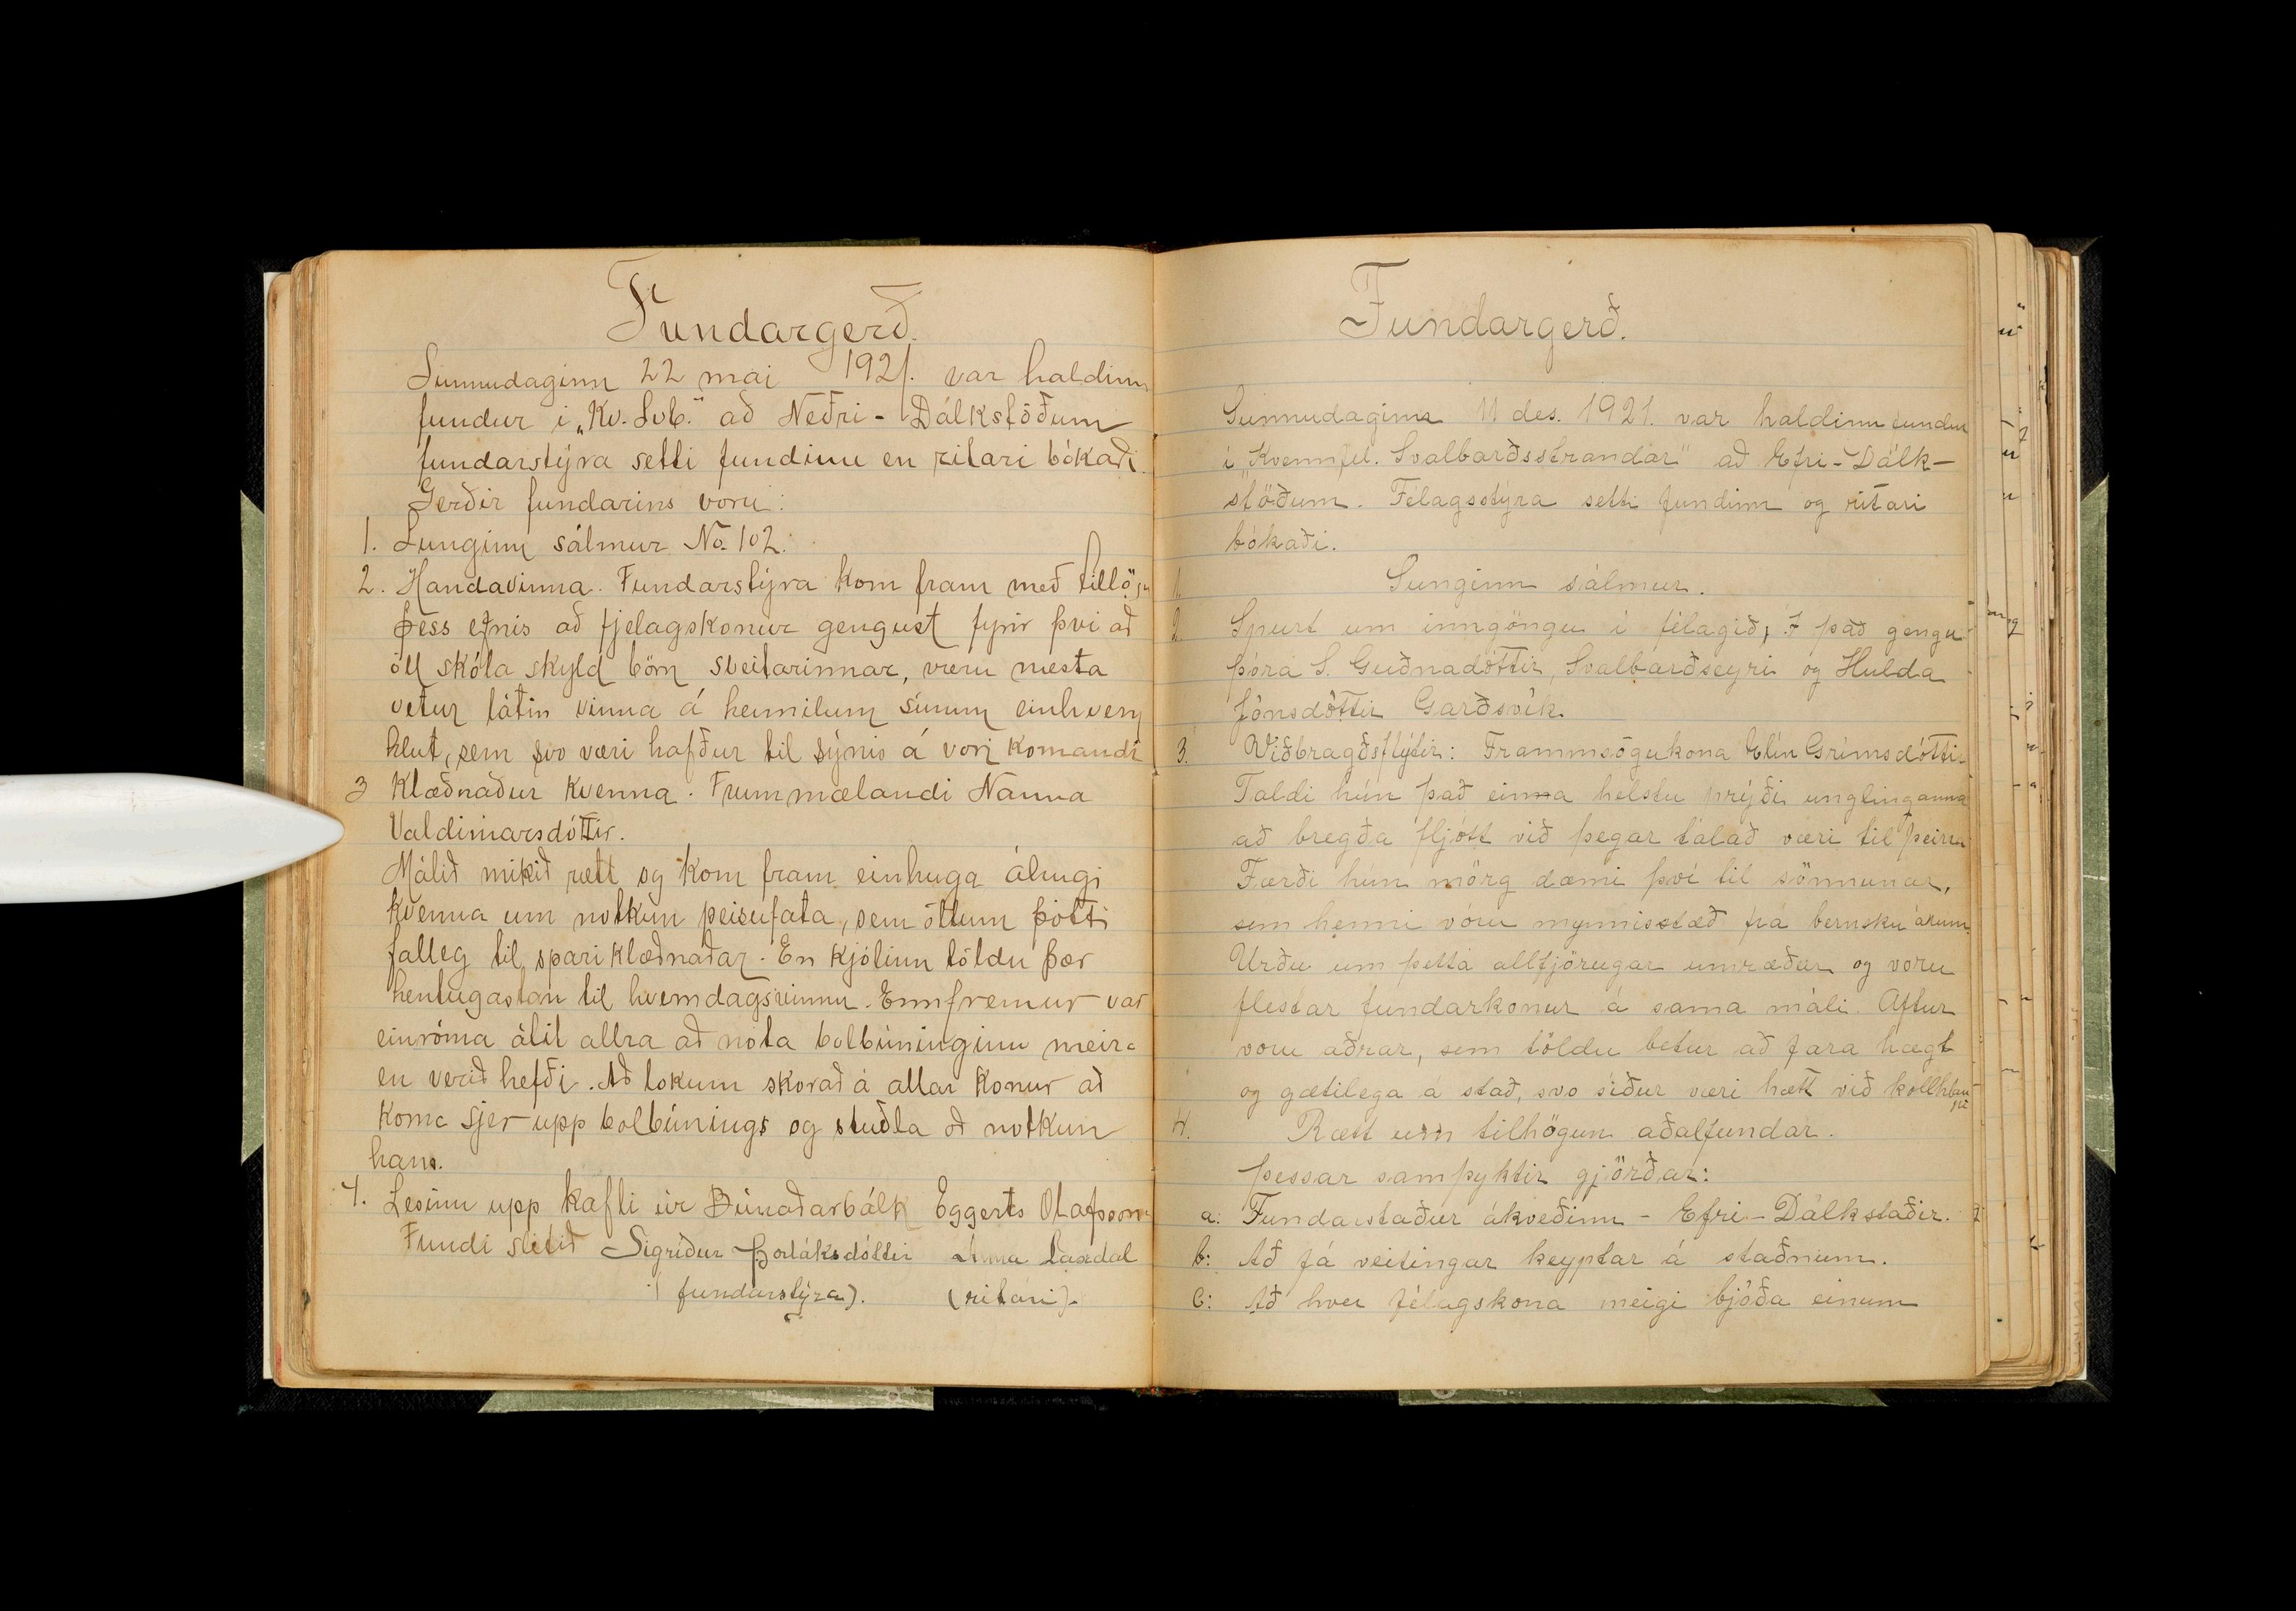 Fundargerð.
Sunnudaginn 22 mai 1921. var haldinn
fundur i „Kv. Svb." að Neðri-Dálkstöðum
fundarstýra setti fundinn en ritari bókaði.
Gerðir fundarins voru:
1. Sunginn sálmur No. 102.
2. Handavinna. Fundarstýra kom fram með tillögu
þess efnis að fjelagskonur gengust fyrir því að
öll skóla skyld börn sveitarinnar, væru næsta
vetur látin vinna á heimilum sínum einhvern
hlut, sem svo væri hafður til sýnis á vori komandi
3 Klæðnaður kvenna. Frummælandi Nanna
Valdimarsdóttir.
Málið mikið rætt og kom fram einhuga áhugi
kvenna um notkun peisufata, sem öllum þótti
falleg til spariklæðnaðar. En kjólinn töldu þær
hentugastan til hverndagsvinnu. Ennfremur var
einróma álit allra að nota bolbúninginn meira
en verið hefði. Að lokum skorað á allar konur að
koma sjer upp bolbúnings og stuðla að notkun
hans.
4. Lesinn upp kafli úr Búnaðarbálk Eggerts Olafssonar
Fundi slitið Sigríður Þorláksdóttir Anna Laxdal
(fundarstýra). (ritari).
Fundargerð.
Sunnudaginn 11 des. 1921. var haldinn fundur
í „Kvennfél. Svalbarðsstrandar" að Efri-Dálk-
stöðum. Félagsstýra setti fundinn og ritari
bókaði.
1. Sunginn sálmur.
2 Spurt um inngöngu í félagið, Í það gengu
Þóra S. Guðnadóttir, Svalbarðseyri og Hulda
Jónsdóttir Garðsvík.
3. Viðbragðsflýtir: Frammsögukona Elín Grímsdóttir
Taldi hún það einna helstu prýði unglinganna
að bregða fljótt við þegar talað væri til þeirra
Færði hún mörg dæmi því til sönnunar,
sem henni vóru mynnisstæð frá bernsku árum.
Urðu um þetta allfjörugar umræður og voru
flestar fundarkonur á sama máli. Aftur
voru aðrar, sem töldu betur að fara hægt
og gætilega á stað, svo síður væri hætt við kollhlau-
pi
4. Rætt um tilhögun aðalfundar.
Þessar samþyktir gjörðar:
a: Fundarstaður ákveðinn - Efri-Dálkstaðir.
b: Að fá veitingar keyptar á staðnum.
c: Að hver félagskona meigi bjóða einum